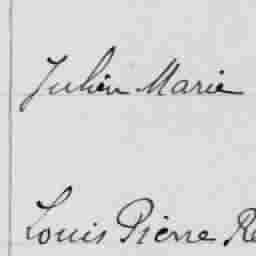 Julien Marie
Louis Pierre Re